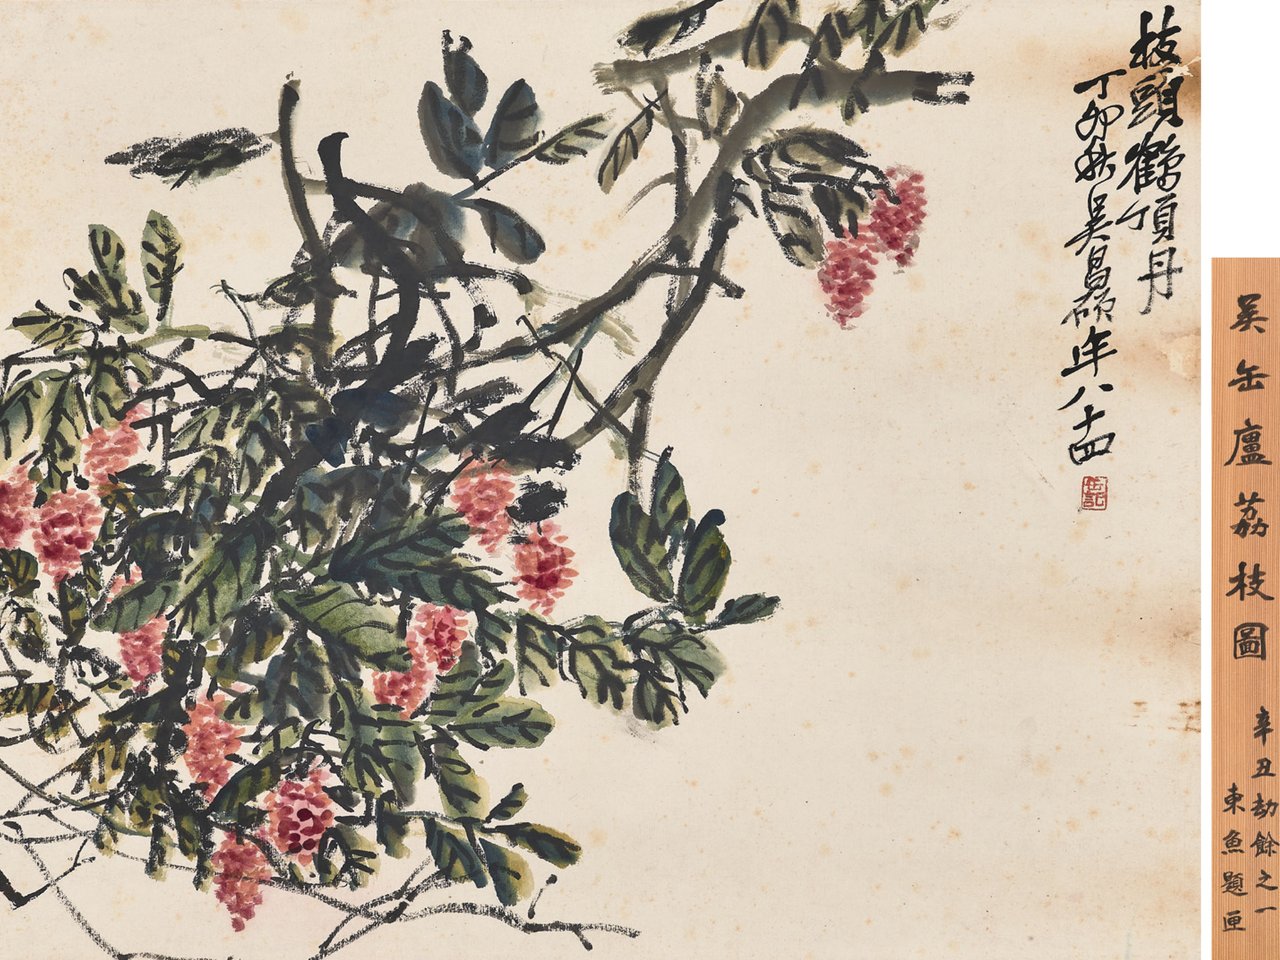 枝頭鶴頂丹
丁卯秋吳昌碩年八十四
缶記
吳缶廬荔枝圖
辛丑劫餘之一
東魚題匣